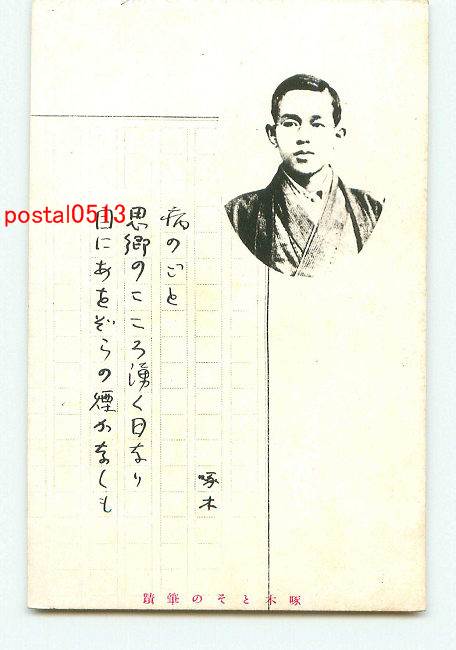 病のごと
思郷のこころ湧く日なり
目にあをぞらの煙かなしも
啄木
啄木とその筆蹟
postal0513